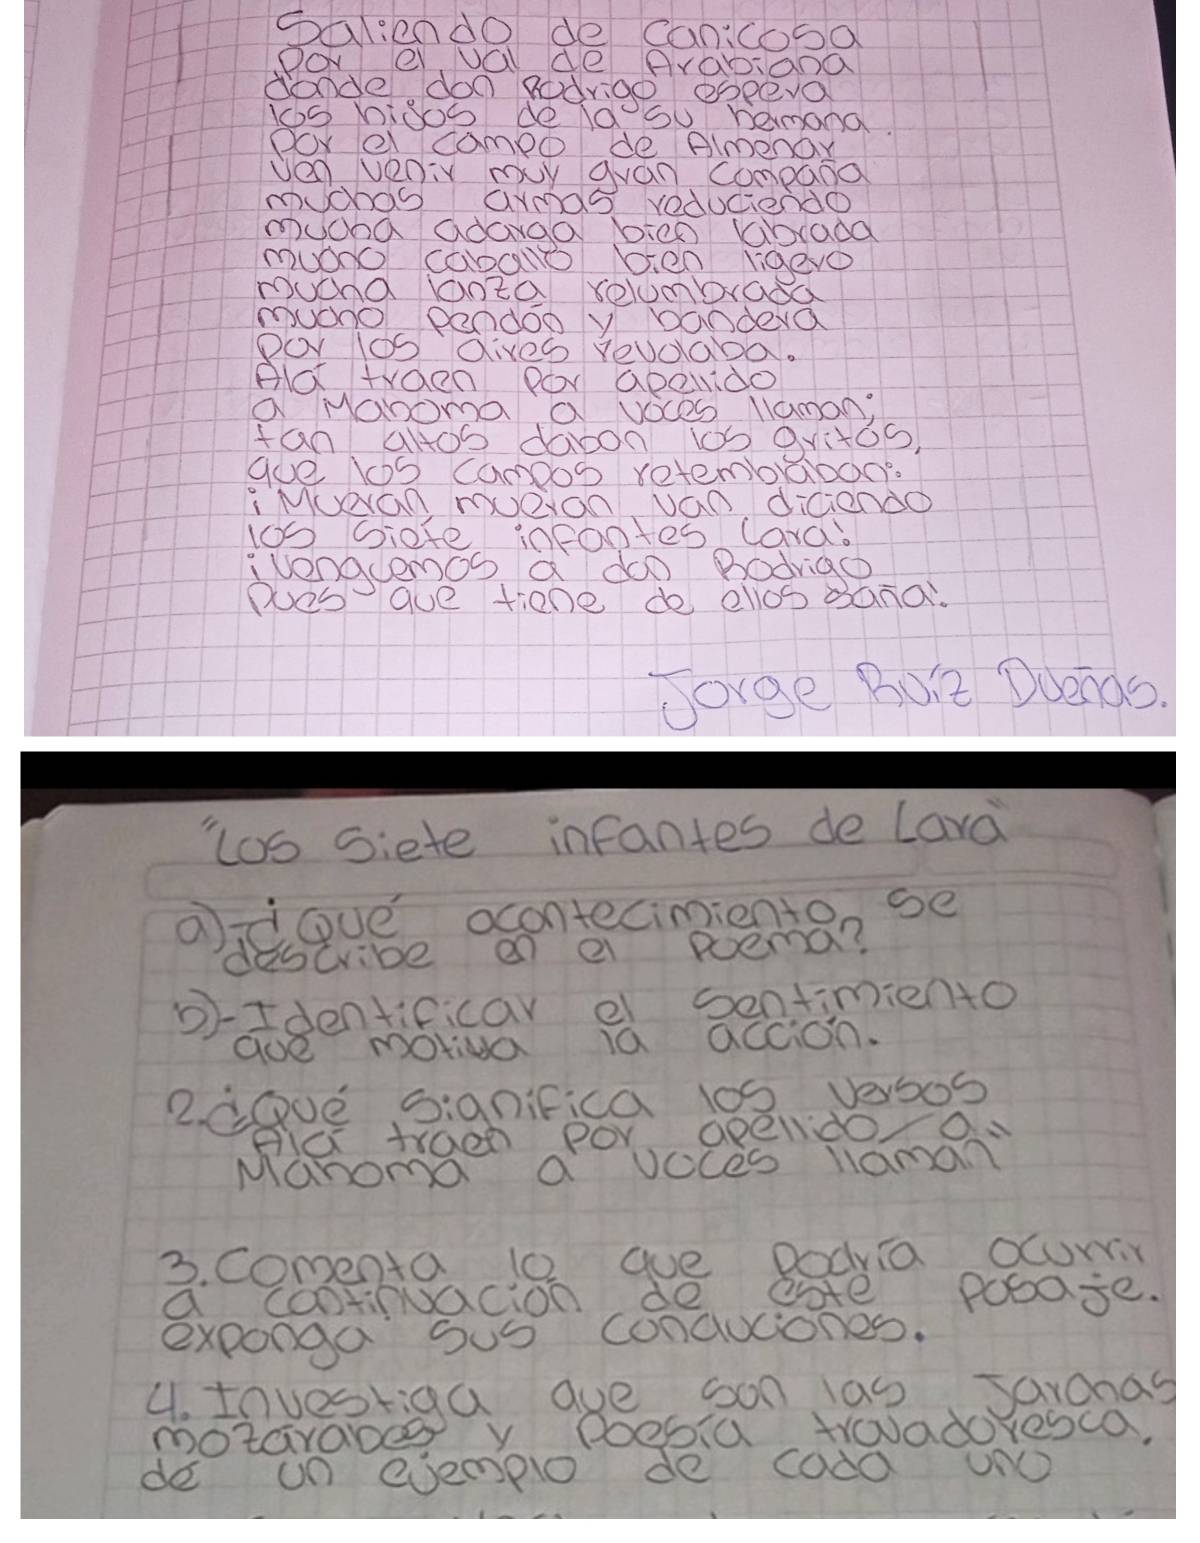 Saliendo de Canicosa
por el val de Arabiana
donde don Rodrigo espera
los hijos de la su hermana.
por el campo de Almenar
ven venir muy gran compaña
muchas armas reduciendo
mucha adarga bien labrada
mucho caballo bien ligero
mucha lanza relumbrada
mucho pendón y bandera
por los aires revolaba.
Alá traen por apellido
a Mahoma a voces llaman;
tan altos daban los gritos,
que los campos retemblaban:
¡Mueran mueran van diciendo
los siete infantes Lara!
¡venguemos a don Rodrigo
pues que tiene de ellos saña!.
Jorge Ruíz Dueñas.
"Los siete infantes de Lara"
a)-¿Qué acontecimiento se
describe en el poema?
b)-Identificar el sentimiento
que motiva la acción.
2.¿Qué significa los versos
Alá traen por apellido / a
Mahoma a voces llaman"
3. Comenta lo que podría ocurrir
a continuación de este pasaje.
exponga sus conclusiones.
4. Investiga que son las Jarchas
mozárabes y poesía trovadoresca.
de un ejemplo de cada uno